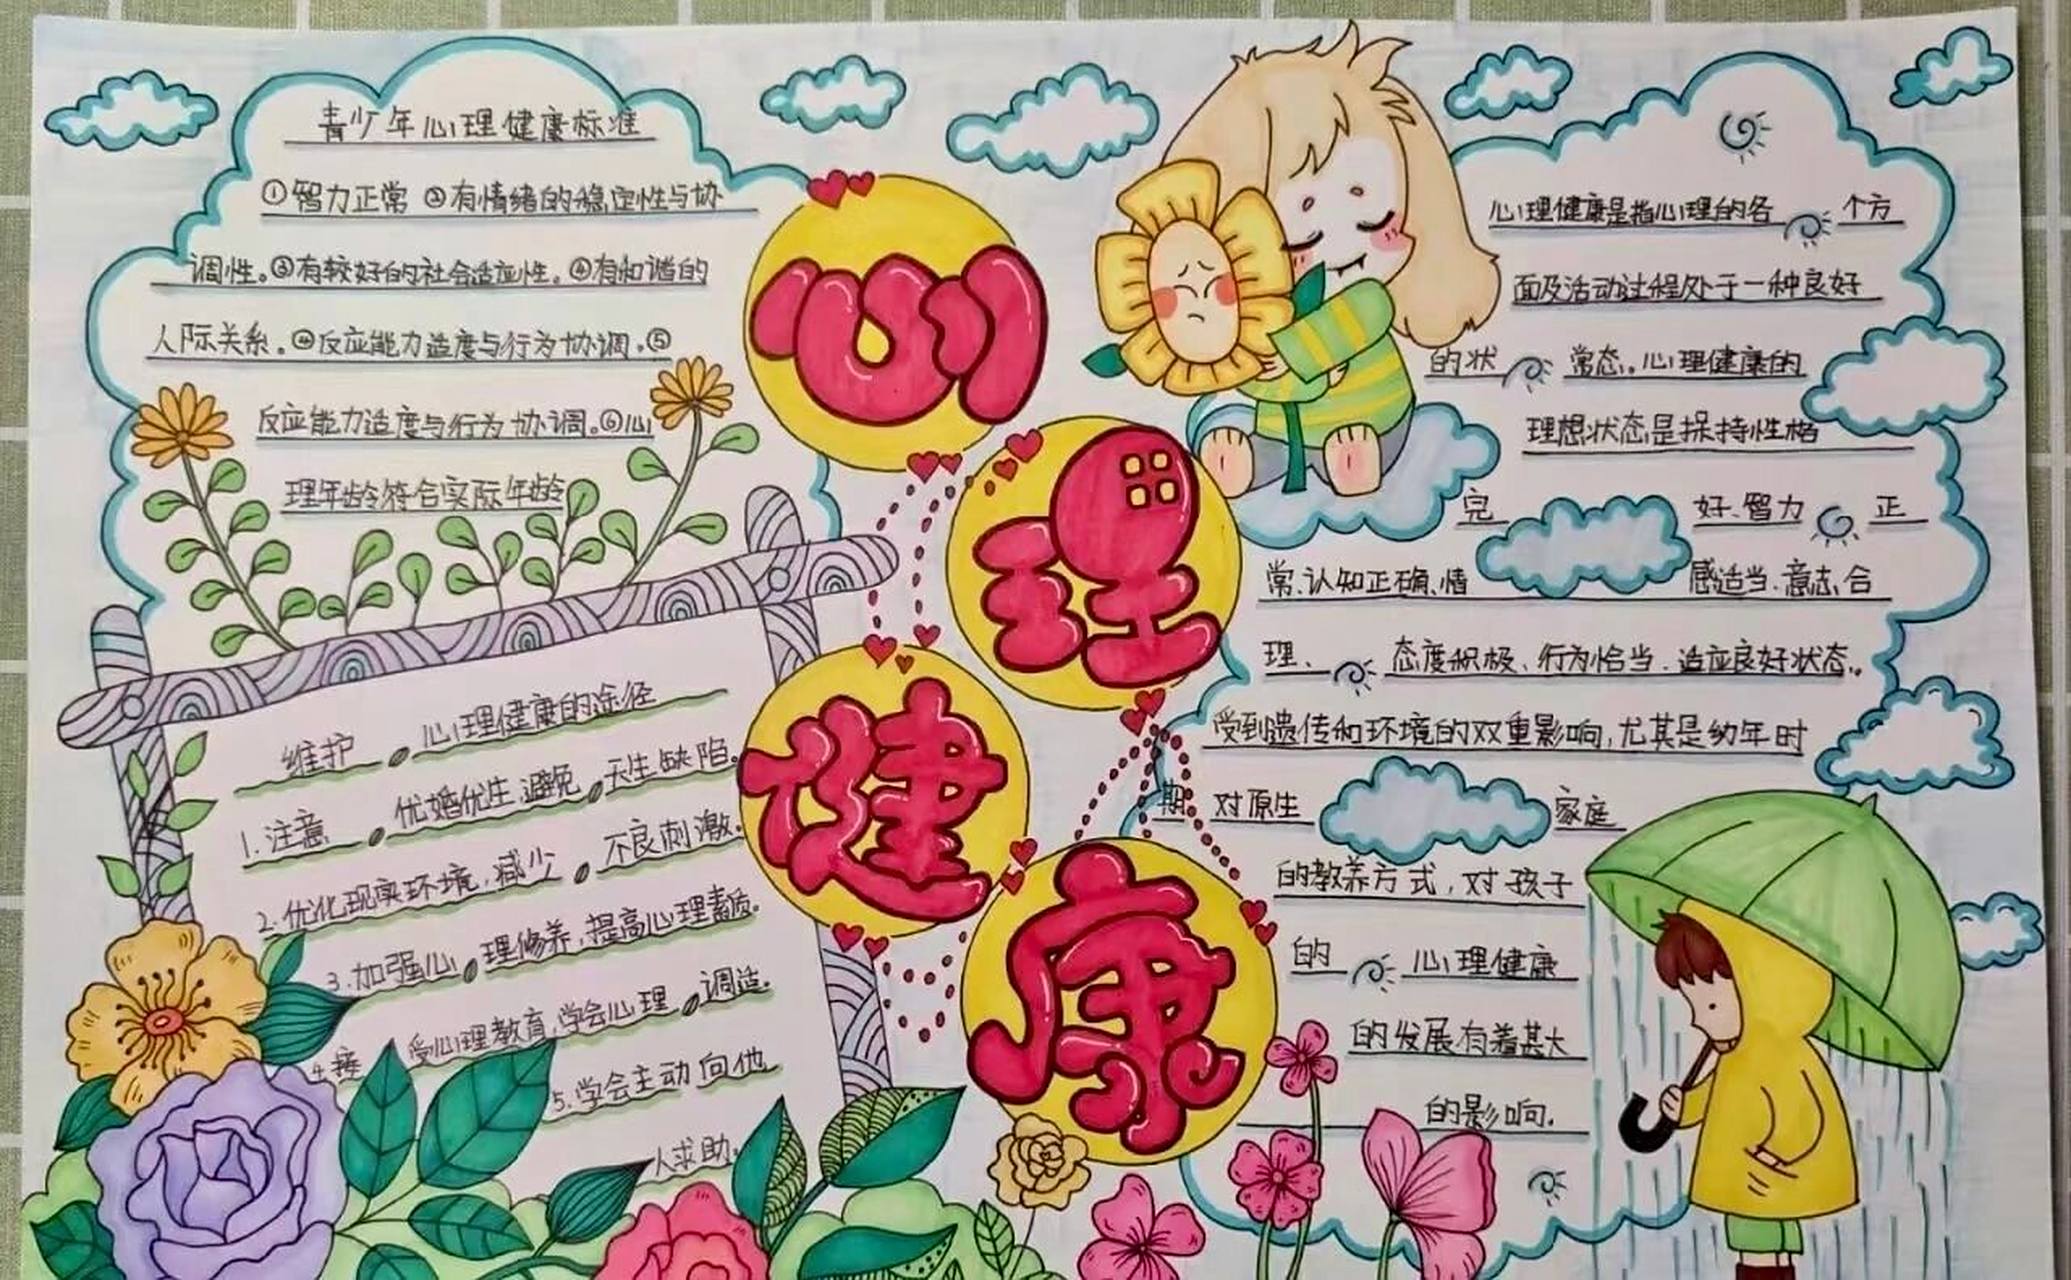 青少年心理健康标准
①智力正常 ②有情绪的稳定性与协
调性。③有较好的社会适应性。④有和谐的
人际关系。④反应能力适度与行为协调。⑤
反应能力适度与行为协调。⑥心
理年龄符合实际年龄
心
理
健
康
维护 心理健康的途径
1.注意 优婚优生,避免 天生缺陷。
2.优化现实环境,减少 不良刺激。
3.加强心 理修养,提高心理素质。
4.接 受心理教育,学会心理 调适。
5.学会主动向他
人求助。
心理健康是指心理的各 个方
面及活动过程处于一种良好
的状 常态。心理健康的
理想状态是保持性格
完 好、智力 正
常、认知正确、情 感适当、意志合
理、 态度积极、行为恰当、适应良好状态。
受到遗传和环境的双重影响,尤其是幼年时
期 对原生 家庭
的教养方式,对孩子
的 心理健康
的发展有着甚大
的影响.